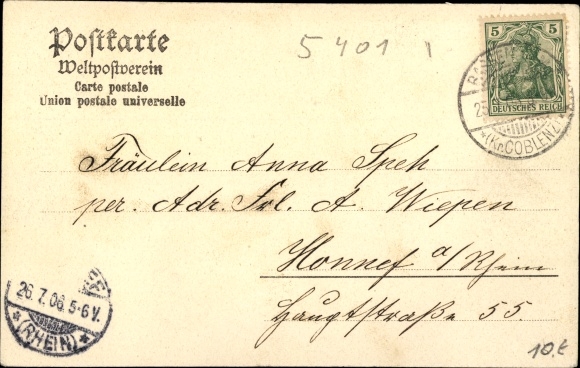 Postkarte
Weltpostverein
Carte postale
Union postale universelle
5401
5 5
DEUTSCHES REICH
(Kr. COBLENZ)
Fräulein Anna Speh
per. Adr. Frl. A. Wiepen
Honnef a/Rhein
Hauptstraße 55.
26.7.06.5-6V.
*(RHEIN)*
10.t